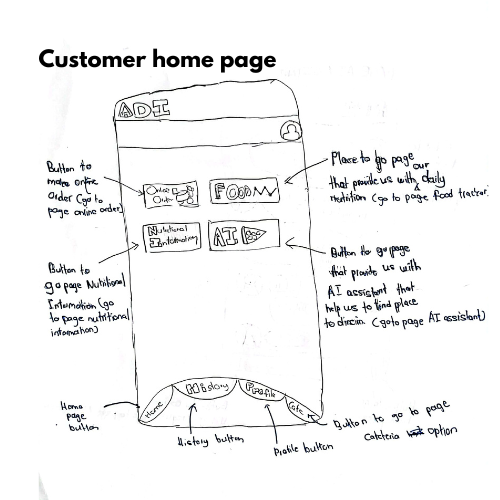 Customer home page
ADI
Button to
make online
Order (go to
page online order)
Online
Order
Food
Place to go page
our
that provide us with daily
Nutrition (go to page food tractor
Nutritional
Information
AI
Button to
go page Nutritional
Information (go
to page nutritional
information)
Button to go page
that provide us with
AI assistant that
help us to find place
to dirin. (goto page AI assistant)
Home
page
button
Home
History
Profile
Cafe
History button
Profile button
Button to go to page
Cafeteria option